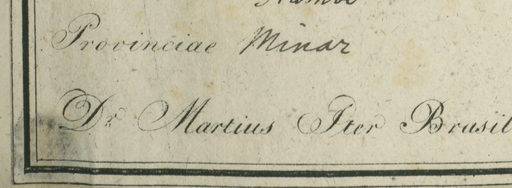 Provinciae Minar
Dr. Martius Iter Brasil